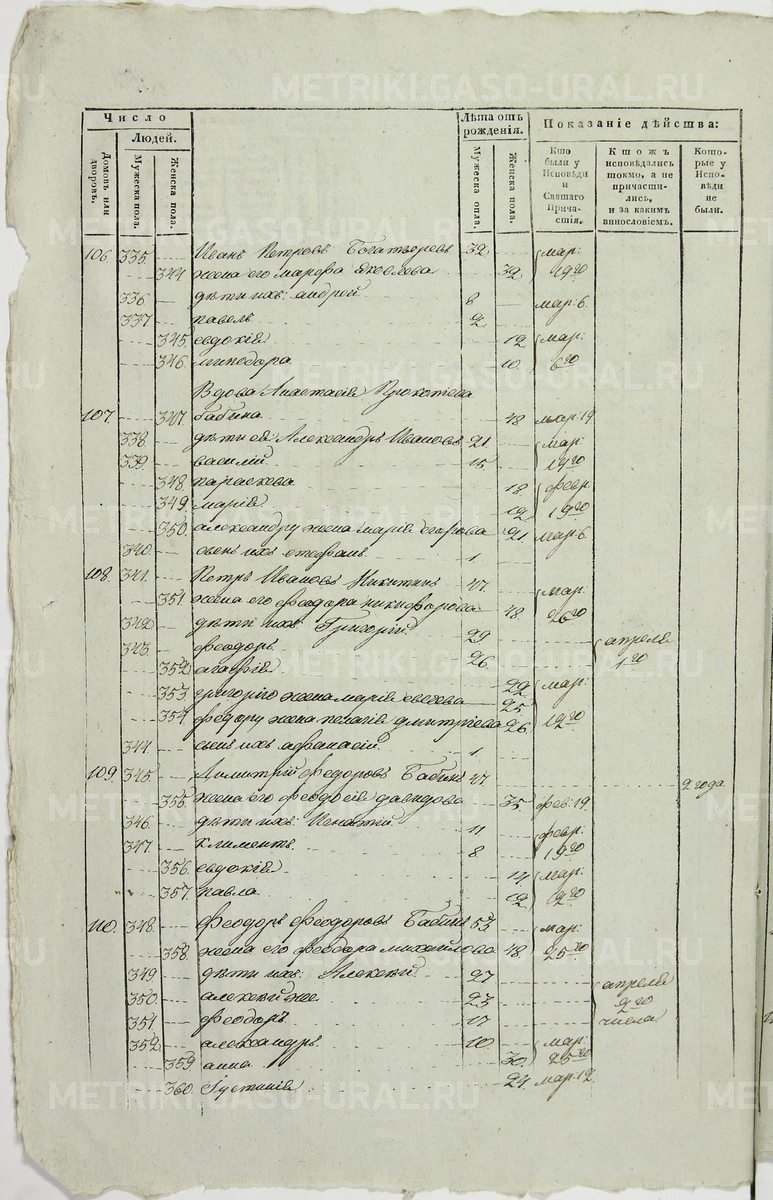 Число
Людей.
Домовъ или дворовъ.
Мужеска пола.
Женска пола.
Лѣта отъ рожденія.
Мужеска опла.
Женска пола.
Показаніе дѣйства:
Кто были у Исповѣди и Святаго Причастія.
Ктожъ исповѣдались токмо, а не причастились, и за какимъ винословіемъ.
Которые у Исповѣди не были.
106. 335. Иванъ Петровъ Богатыревъ 32. мар:
344 жена его марфа Яковлева 32. 19го
336 дѣти ихъ: андрей 8 мар: 6.
337 павелъ 2
345. евдокія 12 мар:
346. минодора 10. 6го
Вдова Анастасія Прокопьева
107. 347 бабина 48 мар: 19
338. дѣти ея: Александръ Ивановъ 21 мар:
339. василій 15 19го
348. параскева 18 февр:
349 марія 12 19го
350. александру жена марія егорова 21. мар: 6.
340. сынъ ихъ стефанъ 1
108. 341. Петръ Ивановъ Никитинъ 47. мар:
351 жена его феодора никифорова 48. 26го
342. дѣти ихъ: Григорій 29
343. феодоръ 26. апреля 1го
352. агафія 22 мар:
353. григорію жена марія 25
354. федору жена пелагія дмитріева 26. 12го
344. сынъ ихъ афанасій 1.
109. 345. Димитрій Федоровъ Бабинъ 47 2 года
355. жена его феодосія давидова 35. фев: 19.
346. дѣти ихъ: Игнатій 11 февр:
347. климентъ 8 19го
356. евдокія 14 мар:
357. павла 12 12го
110. 348. Феодоръ Феодоровъ Бабинъ 53 мар:
358. жена его феодора михайлова 48 25го
349. дѣти ихъ: Алексѣй 27
350. алексѣй же 23 апреля
351. феодоръ 17 2го числа
352. александръ 10 мар:
359 анна 30. 25го
360. Густинія 24. мар: 12.
METRIKI.GASO-URAL.RU